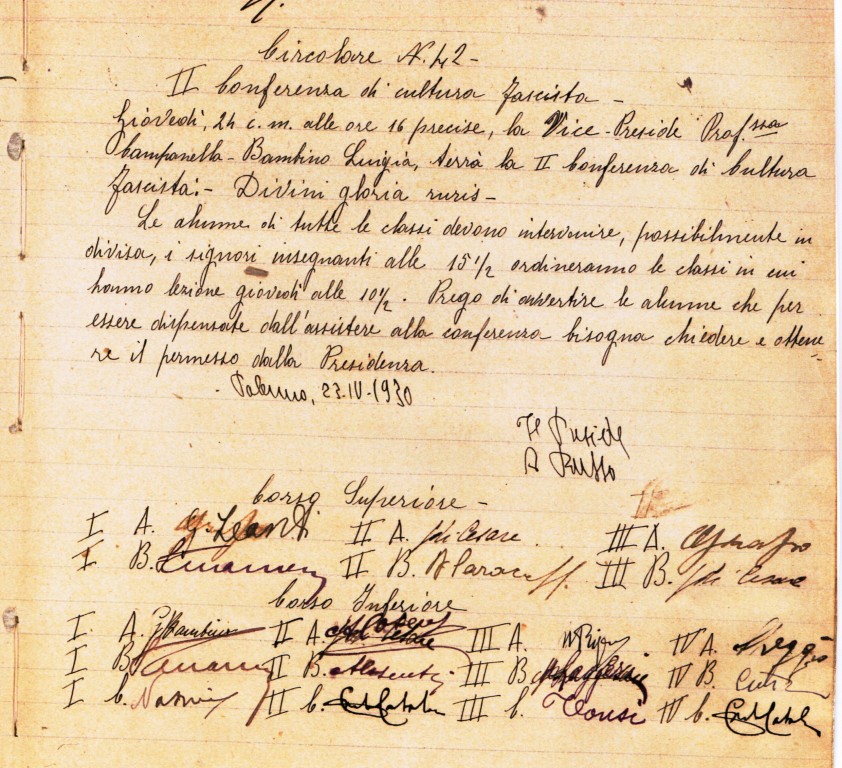 Circolare N. 42 -
II Conferenza di cultura fascista -
Giovedì, 24 c. m. alle ore 16 precise, la Vice-Preside Prof.ssa
Campanella-Bambino Luigia, terrà la II Conferenza di Cultura
fascista:- Divini gloria ruris -
Le alunne di tutte le classi devono intervenire, possibilmente in
divisa, i signori insegnanti alle 15 1/2 ordineranno le classi in cui
hanno lezione giovedì alle 10 1/2. Prego di avvertire le alunne che per
essere dispensate dall'assistere alla conferenza bisogna chiedere e ottene-
re il permesso dalla Presidenza.
Palermo, 23.IV.1930
Il Preside
A Russo
Corso Superiore -
I A. II A. di Cesare III A.
I B. II B. III B. di Cesare
Corso Inferiore
I A. Bambino II A. III A. IV A.
I B. II B. III B. IV B.
I C. II C. III C. IV C.